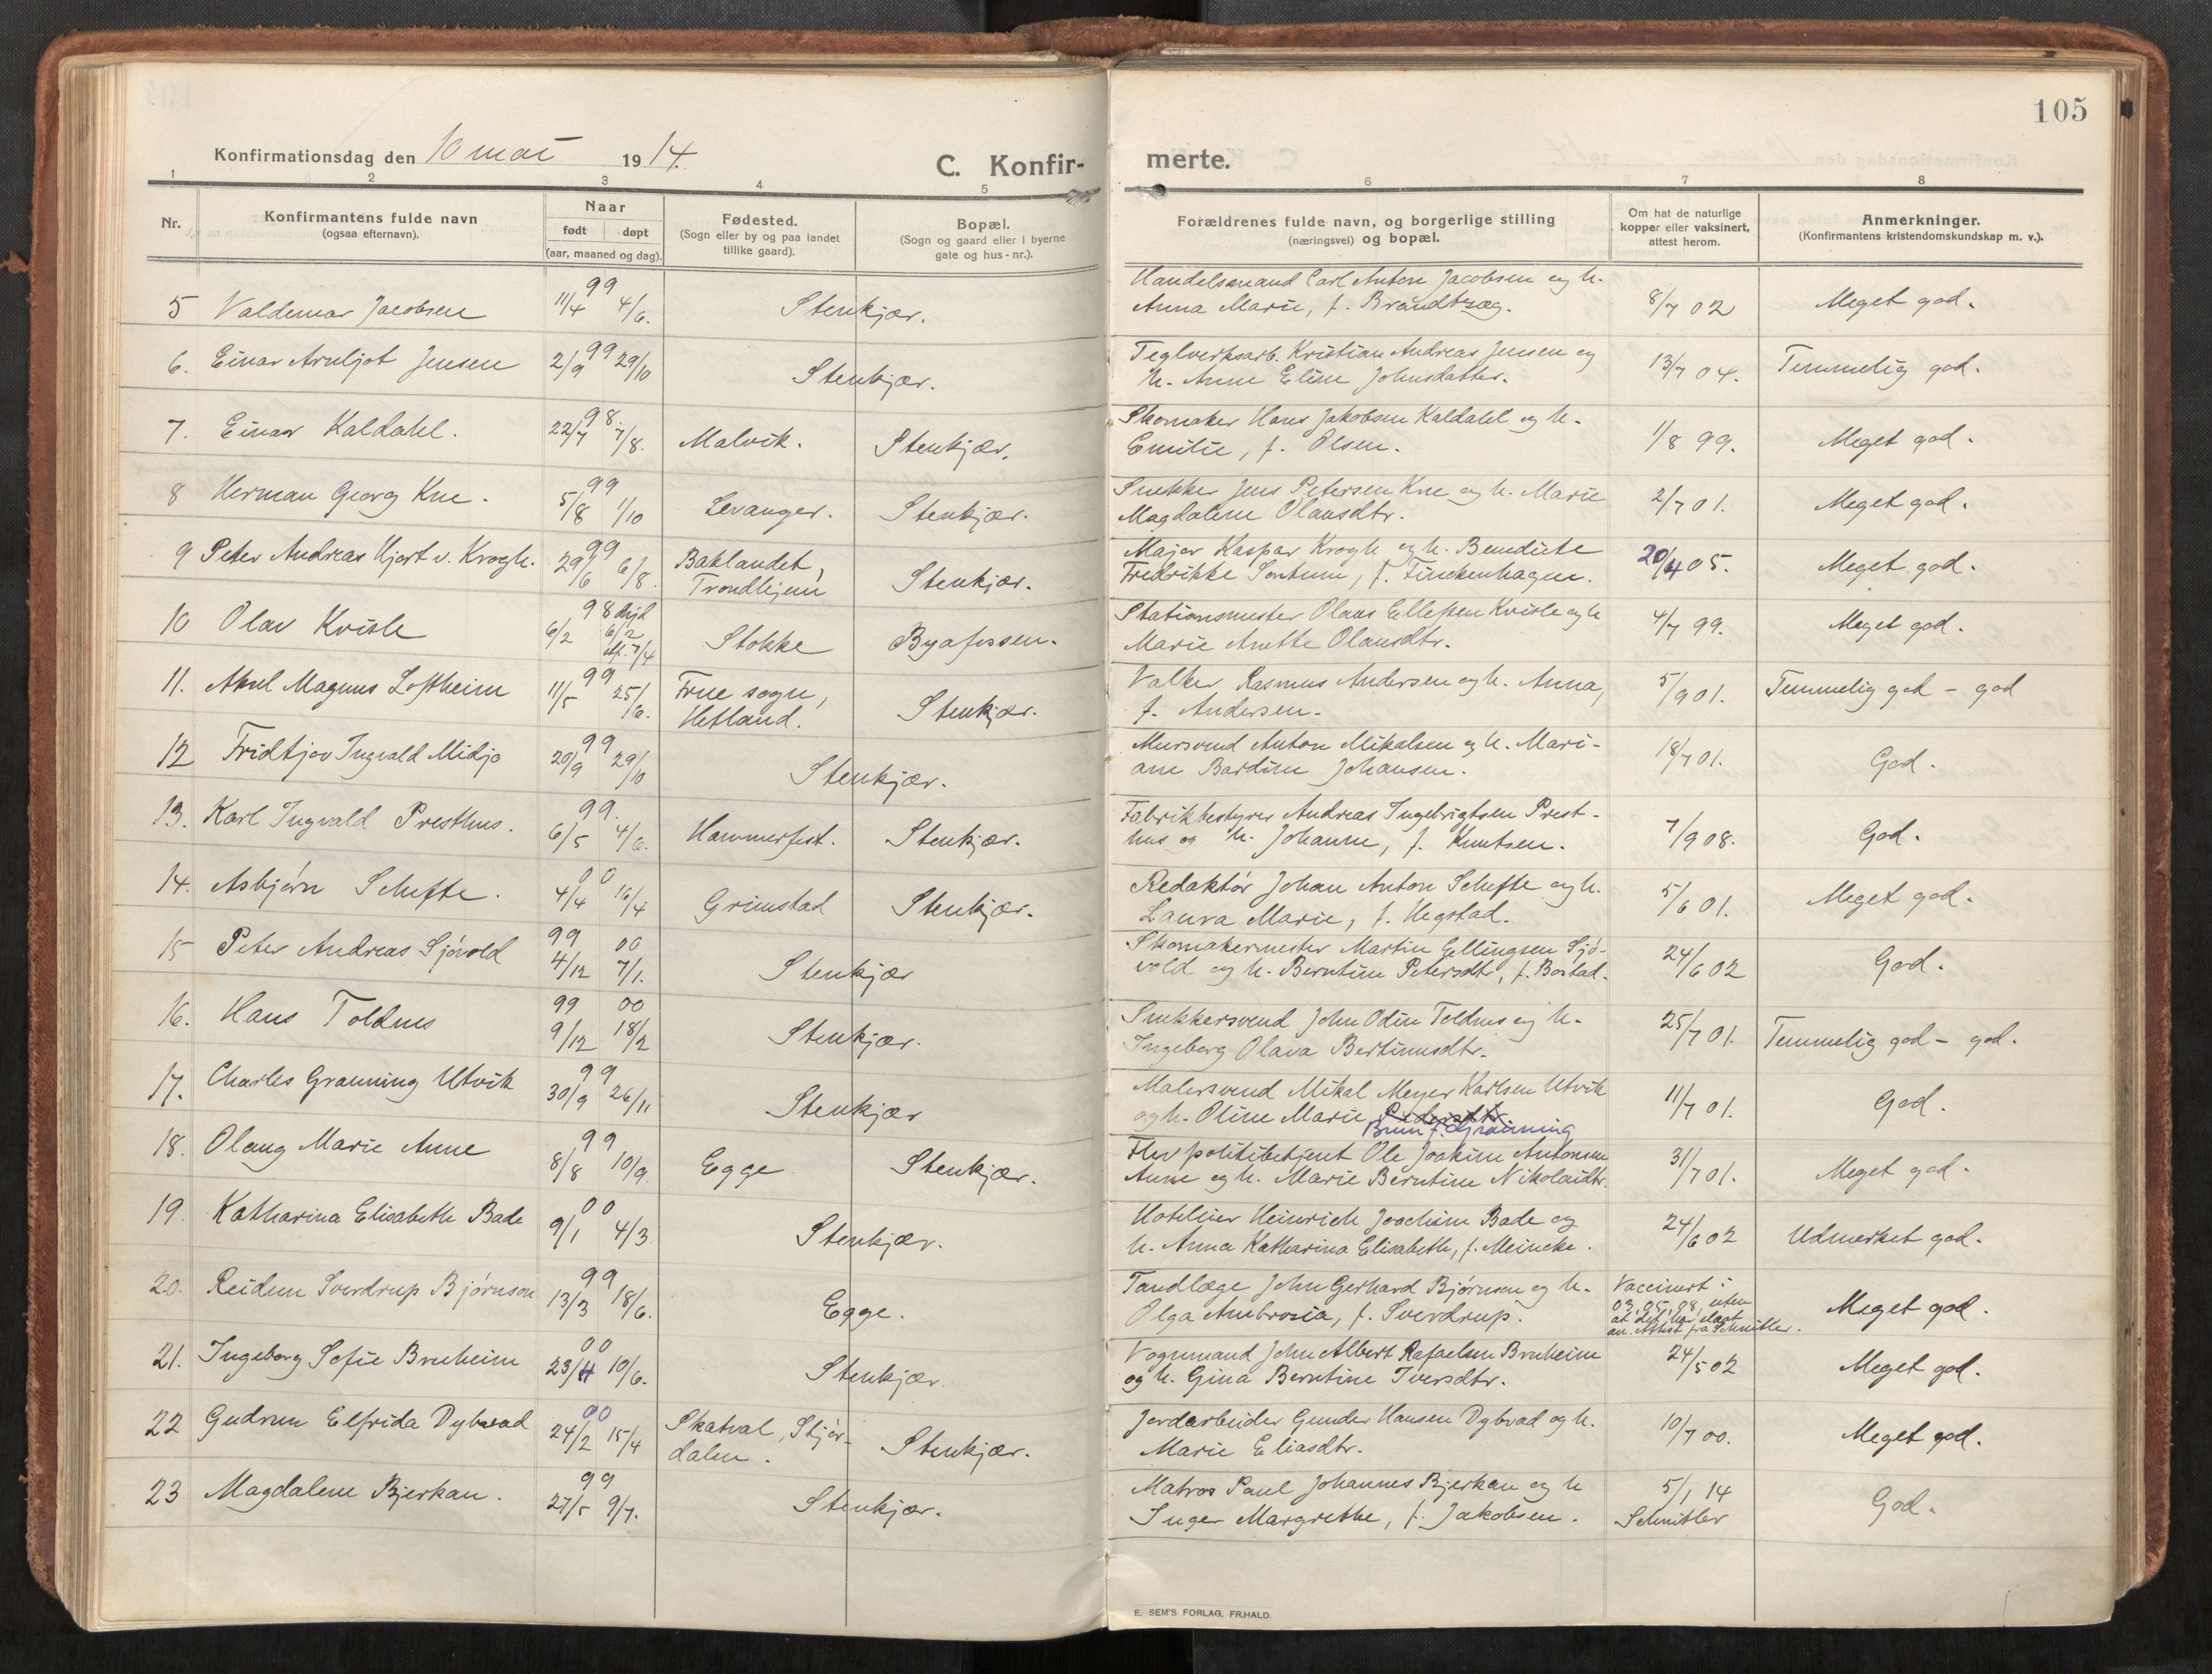 105
Konfirmationsdag den 10 mai 1914.
C. Konfir-
merte.
1 2 3 4 5 6 7 8
Nr.
Konfirmantens fulde navn
(ogsaa efternavn).
Naar
født døpt
(aar, maaned og dag).
Fødested.
(Sogn eller by og paa landet
tillike gaard).
Bopæl.
(Sogn og gaard eller i byerne
gate og hus-nr.).
Forældrenes fulde navn, og borgerlige stilling
(næringsvei) og bopæl.
Om hat de naturlige
kopper eller vaksinert,
attest herom.
Anmerkninger.
(Konfirmantens kristendomskundskap m. v.).
5 Valdemar Jacobsen 99 11/4 4/6. Stenkjær.
Handelsmand Carl Anton Jacobsen og h.
Anna Marie, f. Brandtzæg. 8/7 02 Meget god.
6. Einar Arnljot Jensen 99 2/9 29/10 Stenkjær.
Teglverksarb. Kristian Andreas Jensen og
h. Anne Eline Johnsdatter. 13/7 04. Temmelig god.
7. Einar Kaldahl. 98. 22/7 7/8. Malvik. Stenkjær.
Skomaker Hans Jakobsen Kaldahl og h.
Emilie, f. Olsen. 1/8 99. Meget god.
8 Herman Georg Kne. 99 5/8 1/10 Levanger. Stenkjær.
Snekker Jens Petersen Kne og h. Marie
Magdalene Olausdtr. 2/7 01. Meget god.
9 Peter Andreas Hjort v. Krogh. 99 29/6 6/8. Baklandet,
Trondhjem Stenkjær.
Major Kaspar Krogh og h. Benedicte
Fredrikke Sontum, f. Finckenhagen. 20/4 05. Meget god.
10 Olav Kvisle 98 6/2 6/2 7/4 Stokke Byafossen.
Stationsmester Olaus Ellefsen Kvisle og h
Marie Anette Olausdtr. 4/7 99. Meget god.
11. Aksel Magnus Loftheim 99 11/5 25/6. Frue sogn,
Hetland. Stenkjær.
Valker Rasmus Andersen og h. Anna,
f. Andersen. 5/9 01. Temmelig god - god
12 Fridtjov Ingvald Midjo 99 20/9 29/10 Stenkjær.
Mursvend Anton Mikalsen og h. Mari-
ane Bardine Johansen. 18/7 01. God.
13. Karl Ingvald Presthus. 99. 6/5 4/6. Hammerfest. Stenkjær.
Fabrikbestyrer Andreas Ingebrigtsen Prest-
hus og h. Johanne, f. Knutsen. 7/9 08. God.
14. Asbjørn Schefte. 00 4/4 16/4 Grimstad Stenkjær.
Redaktør Johan Anton Schefte og h.
Laura Marie, f. Hegstad. 5/6 01. Meget god.
15 Peter Andreas Sjøvold 99 4/12 00 7/1. Stenkjær
Skomakermester Martin Ellingsen Sjø-
vold og h. Berntine Petersdtr, f. Bostad. 24/6 02 God.
16. Hans Toldnes 99 9/12 00 18/2 Stenkjær.
Snekkersvend John Odin Toldnes og h.
Ingeborg Olava Bertinusdtr. 25/7 01. Temmelig god - god.
17. Charles Grønning Utvik 99 30/9 26/11 Stenkjær
Malersvend Mikal Meyer Karlsen Utvik
og h. Oline Marie Pedersdtr
Brun f. Grønning 11/7 01. God.
18. Olaug Marie Anne 99 8/8 10/9. Egge Stenkjær.
Flev politibetjent Ole Joakim Antonsen
Anne og h. Marie Berntine Nikolaidtr. 31/7 01. Meget god.
19. Katharina Elisabeth Bade 00 9/1 4/3. Stenkjær.
Hotelier Heinrich Joachim Bade og
h. Anna Katharina Elisabeth, f. Meincke. 24/6 02 Udmerket god.
20. Reidun Sverdrup Bjørnson 99 13/3 18/6. Egge.
Tandlæge John Gerhard Bjørnson og h.
Olga Ambrosia, f. Sverdrup. Vaccinert i
03, 05, 08, uten
at det har slaat
an. Attest fra Schnitler. Meget god.
21. Ingeborg Sofie Bruheim 00 23/4 10/6. Stenkjær.
Vognmand John Albert Rafaelsen Bruheim
og h. Gina Berntine Iversdtr. 24/5 02 Meget god.
22 Gudrun Elfrida Dybvad 00 24/2 15/4 Skatval, Stjør-
dalen. Stenkjær.
Jordarbeider Gunder Hansen Dybvad og h.
Marie Eliasdtr. 10/7 00. Meget god.
23 Magdalene Bjerkan. 99 27/5 9/7. Stenkjær.
Matros Paul Johannes Bjerkan og h
Inger Margrethe, f. Jakobsen. 5/1 14
Schnitler God.
E. SEM'S FORLAG, FR.HALD.